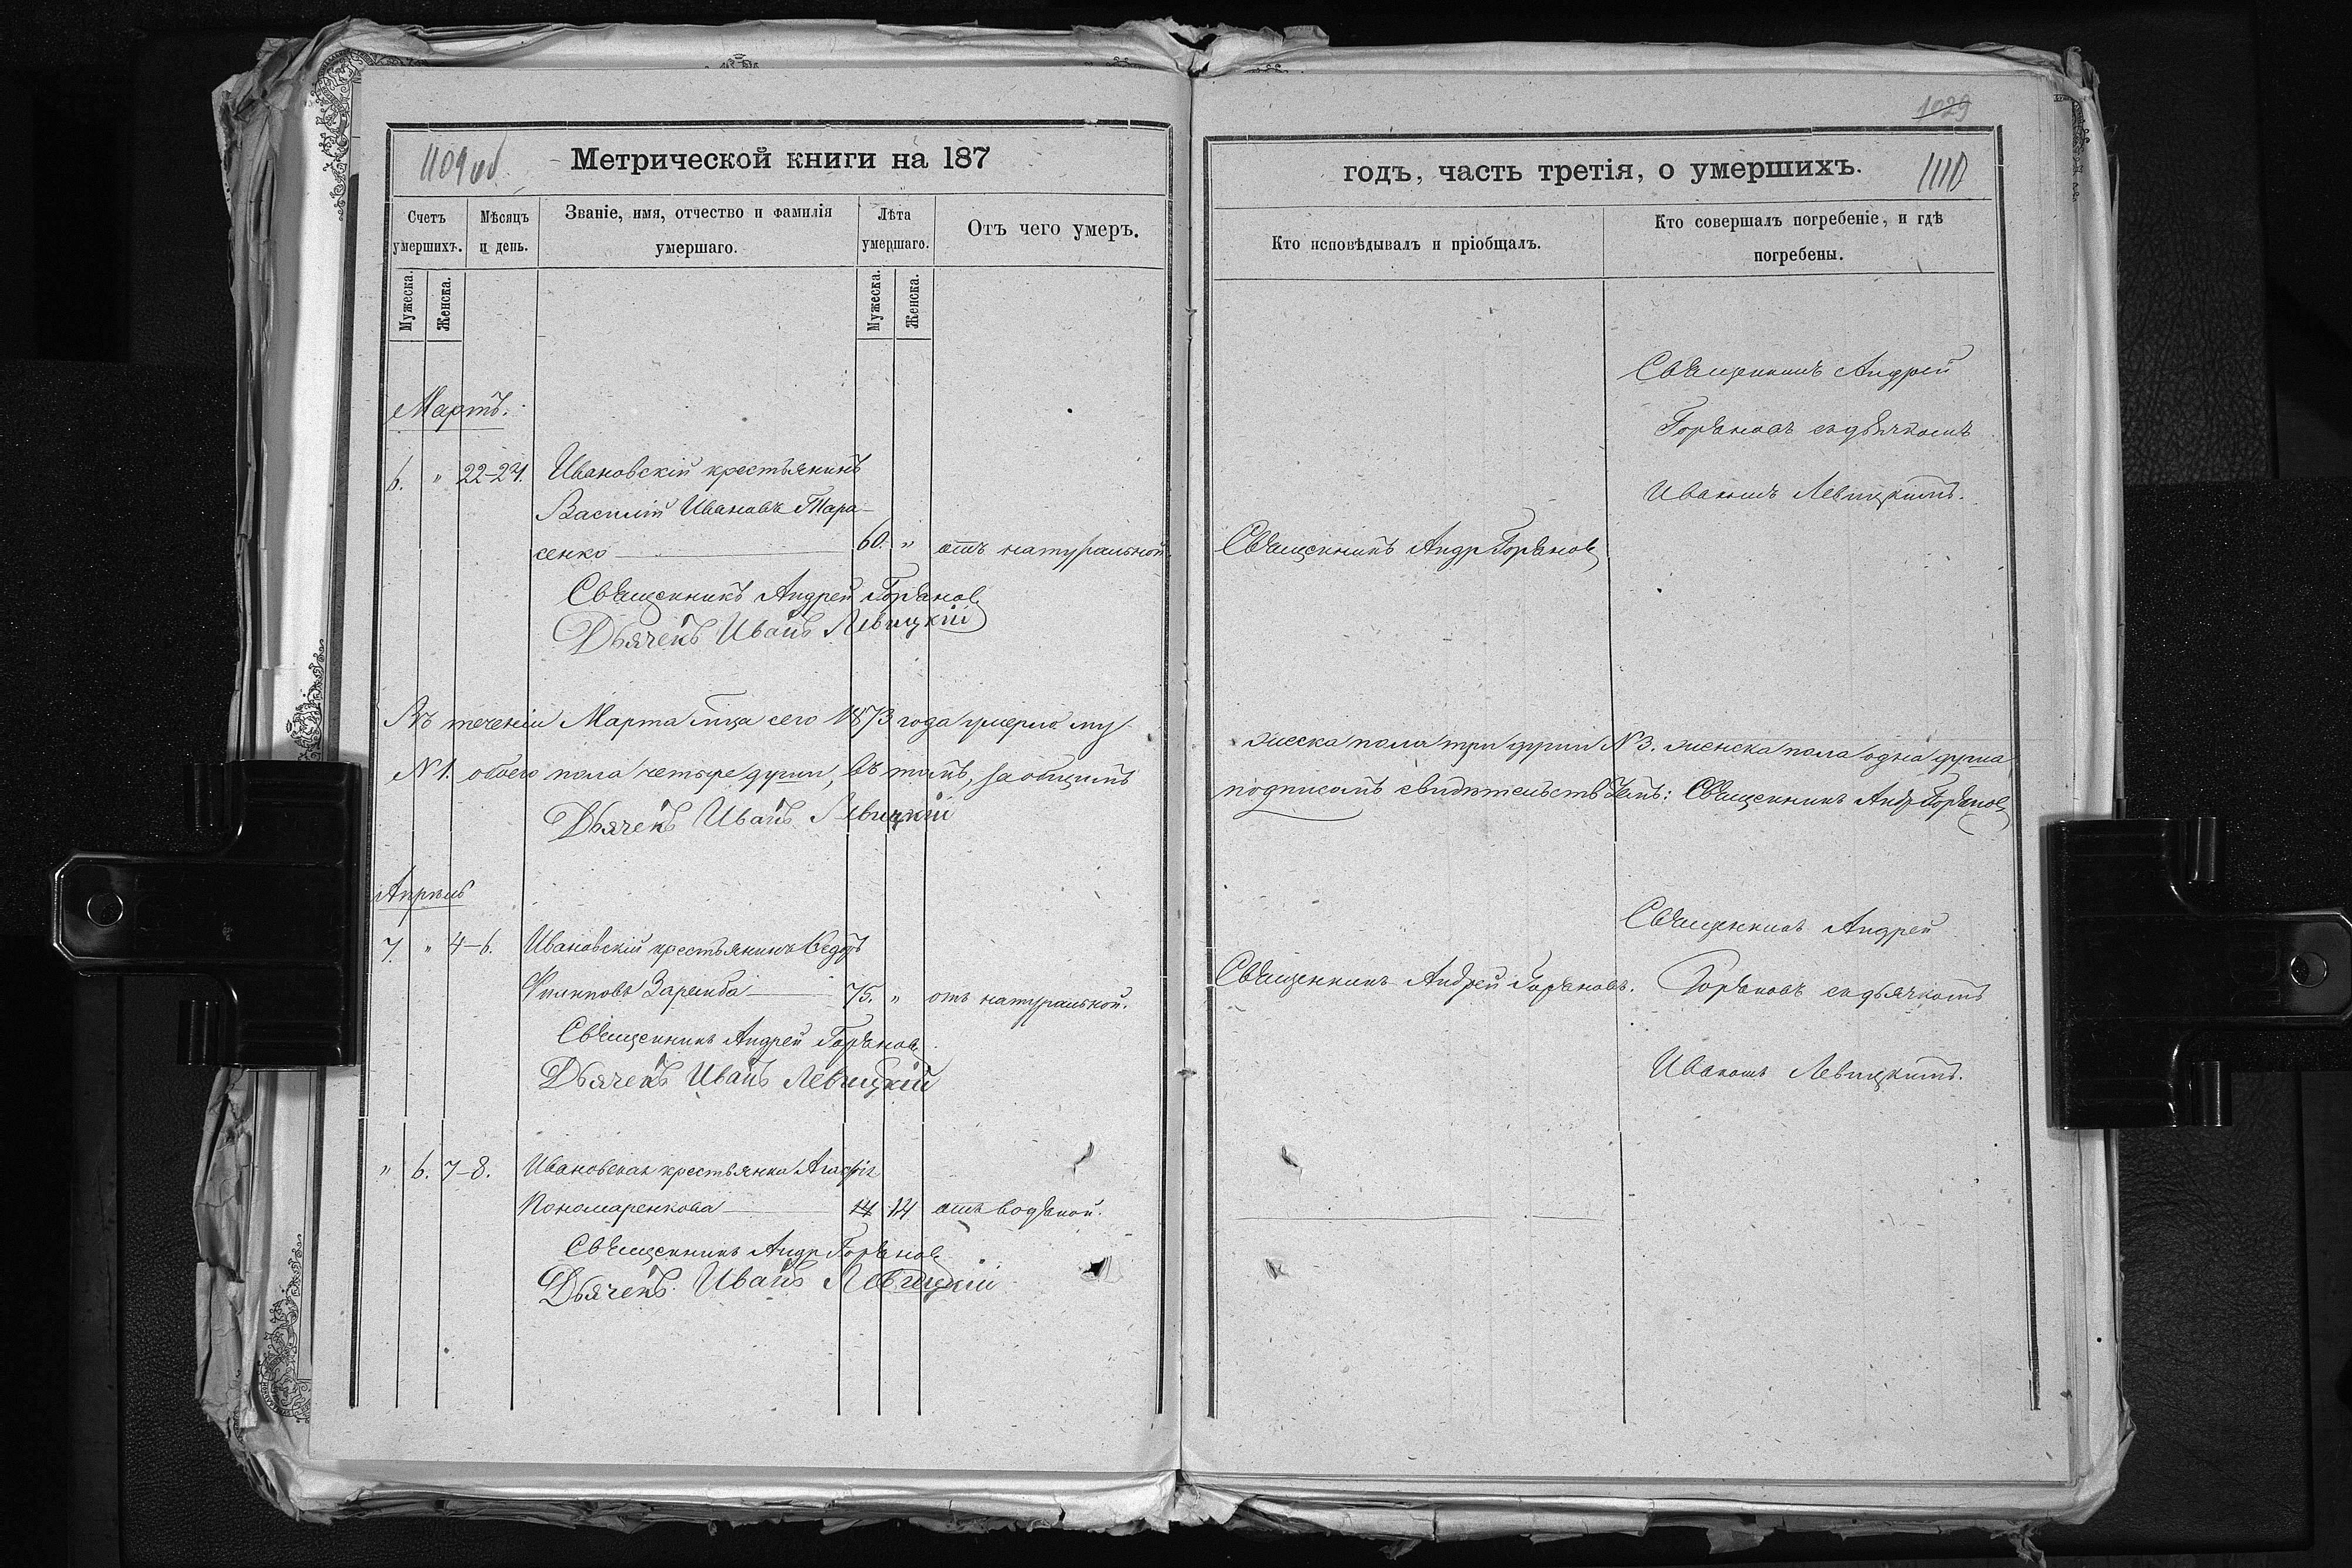 1109 об
Метрической книги на 187
Счетъ умершихъ.
Мужеска.
Женска.
Мѣсяцъ и день.
Званіе, имя, отчество и фамилія умершаго.
Лѣта умершаго.
Мужеска.
Женска.
Отъ чего умеръ.
Мартъ.
6. " 22-24. Ивановскій крестьянинъ
Василій Ивановъ Тара-
сенко 60. " отъ натуральной.
Священникъ Андрей Горяновъ
Дьячекъ Иванъ Левицкій
Въ теченіи Марта мѣсяца сего 1873 года умерло му-
№ 1. обоего пола четыре души, въ томъ, за общимъ
Дьячекъ Иванъ Левицкій
Апрѣль
7. " 4-6. Ивановскій крестьянинъ Ѳедотъ
Филиповъ Заремба 75. " отъ натуральной.
Священникъ Андрей Горяновъ
Дьячекъ Иванъ Левицкій
" 6. 7-8. Ивановская крестьянка
Пономаренкова 14 14 отъ водяной.
Священникъ Андр Горяновъ
Дьячекъ Иванъ Левицкій
1029
годъ, часть третія, о умершихъ.
1110
Кто исповѣдывалъ и пріобщалъ.
Кто совершалъ погребеніе, и гдѣ погребены.
Священникъ Андрей
Горяновъ съ дьячкомъ
Иваномъ Левицкимъ.
Священникъ Андр Горяновъ
жеска пола три души № 3. женска пола одна душа
подписомъ свидѣтельствуемъ: Священникъ Андр Горяновъ
Священникъ Андрей
Священникъ Андрей Горяновъ. Горяновъ съ дьячкомъ
Иваномъ Левицкимъ.